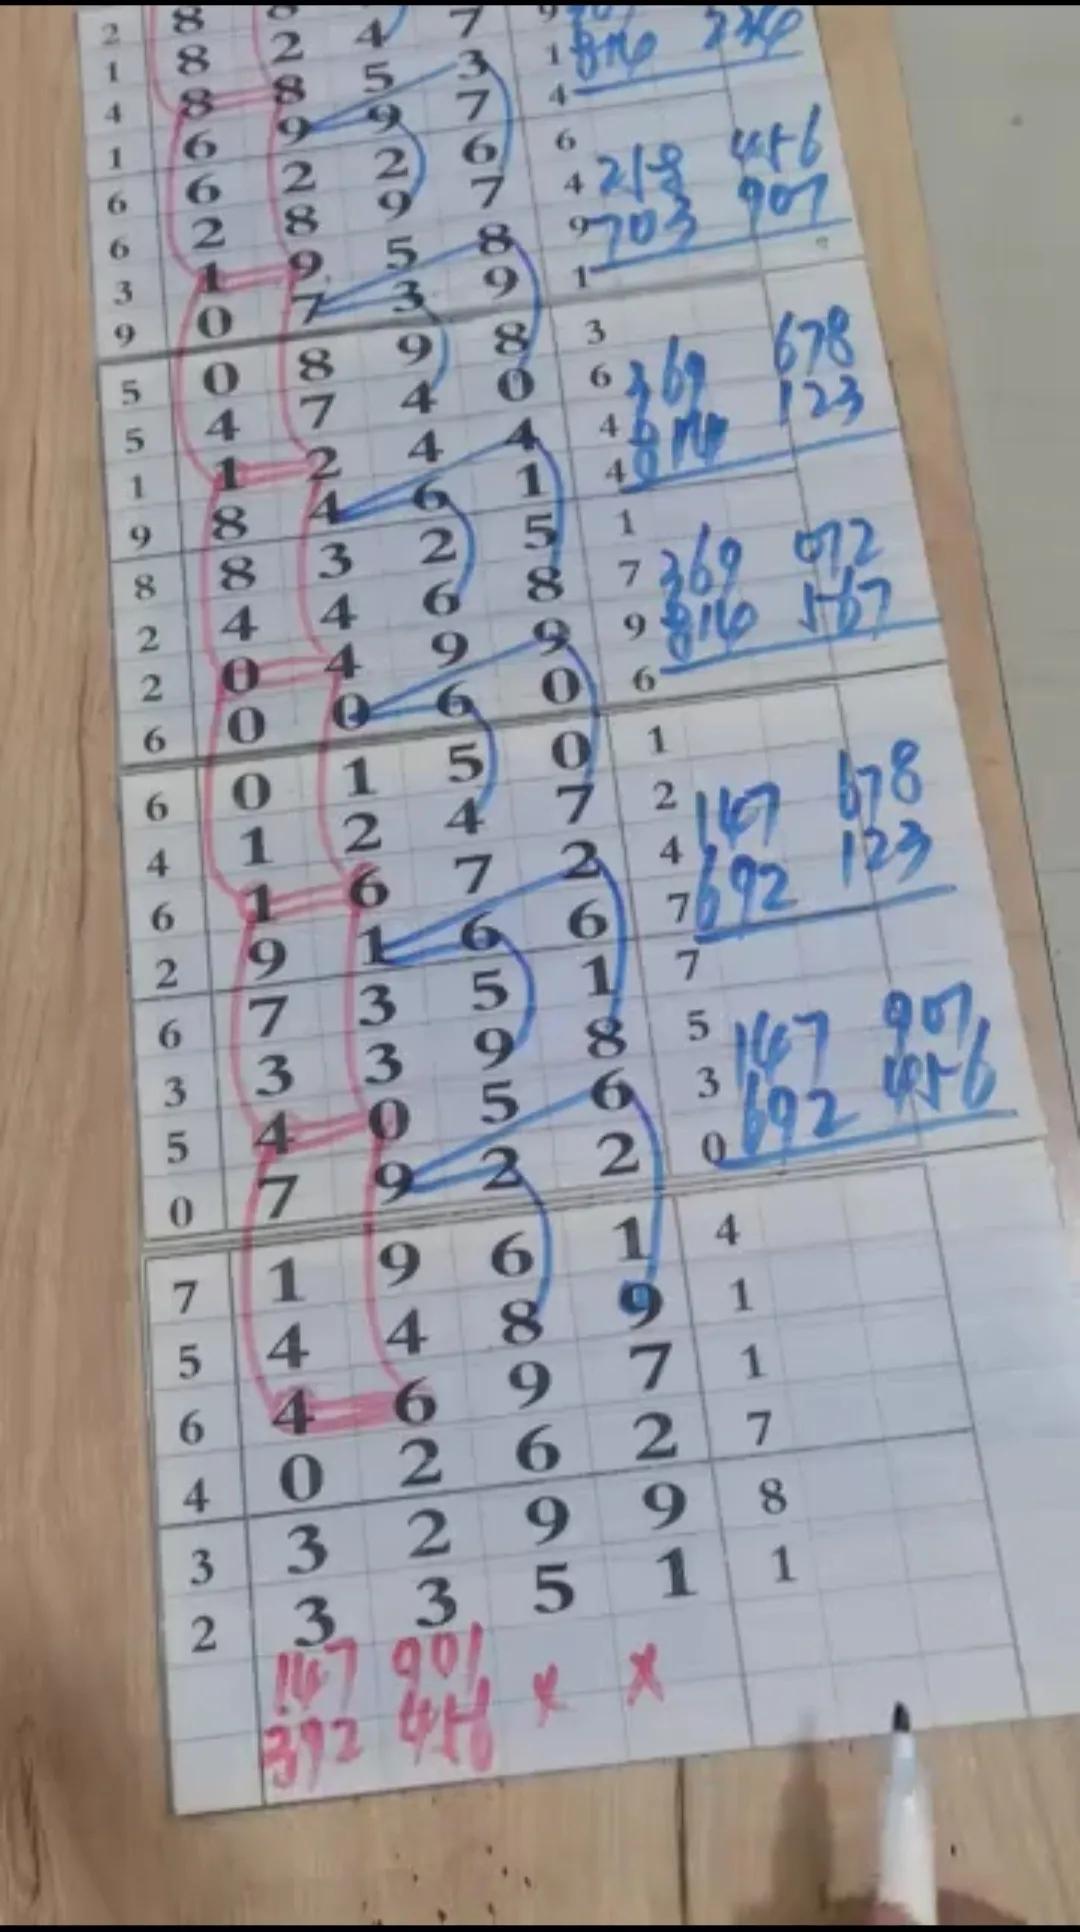 2 8
1 8 2 4 7 9
4 8 8 5 3 1
1 6 9 9 7 4
6 6 2 2 6 6
6 2 8 9 7 4 456
3 1 9 5 8 9 703 907
9 0 7 3 9 1
5 0 8 9 8 3
5 4 7 4 0 6 369 678
1 1 2 4 4 4 814 123
9 8 4 6 1 4
8 8 3 2 5 1
2 4 4 6 8 7 369 072
2 0 4 9 9 9 814 567
6 0 0 6 0 6
6 0 1 5 0 1
4 1 2 4 7 2 147 678
6 1 6 7 2 4 692 123
2 9 1 6 6 7
6 7 3 5 1 7
3 3 3 9 8 5 147 907
5 4 0 5 6 3 692 456
0 7 9 2 2 0
7 1 9 6 1 4
5 4 4 8 9 1
6 4 6 9 7 1
4 0 2 6 2 7
3 3 2 9 9 8
2 3 3 5 1 1
147 901 x x
392 456